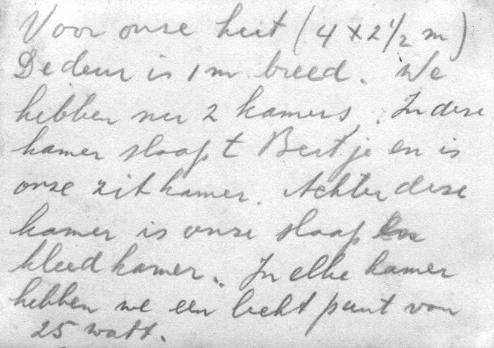 Voor onze hut (4 x 2 1/2 m)
De deur is 1 m breed. We
hebben nu 2 kamers. In deze
kamer slaapt Bertje en is
onze zitkamer. Achter deze
kamer is onze slaap en
kleedkamer. In elke kamer
hebben we een licht punt van
25 watt.